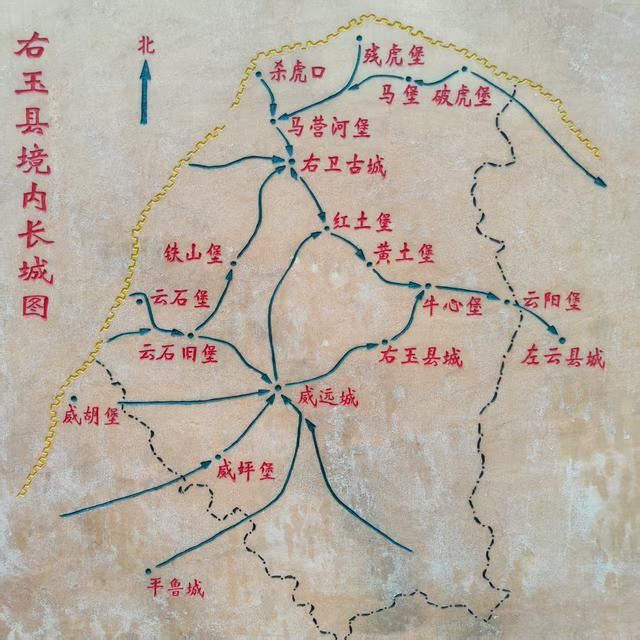 右玉县境内长城图
北
残虎堡
杀虎口
马堡
破虎堡
马营河堡
右卫古城
红土堡
铁山堡
黄土堡
云石堡
牛心堡
云阳堡
云石旧堡
右玉县城
左云县城
威胡堡
威远城
威坪堡
平鲁城